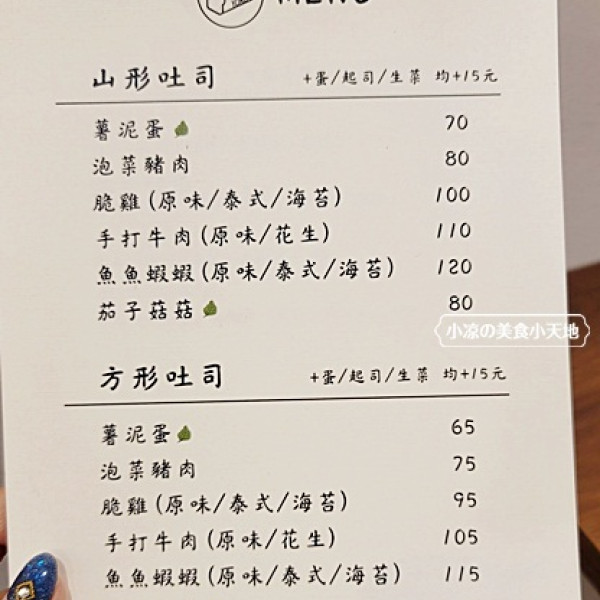 MENU
山形吐司 +蛋/起司/生菜 均+15元
薯泥蛋 70
泡菜豬肉 80
脆雞(原味/泰式/海苔) 100
手打牛肉(原味/花生) 110
魚魚蝦蝦(原味/泰式/海苔) 120
茄子菇菇 80
小凉の美食小天地
方形吐司 +蛋/起司/生菜 均+15元
薯泥蛋 65
泡菜豬肉 75
脆雞(原味/泰式/海苔) 95
手打牛肉(原味/花生) 105
魚魚蝦蝦(原味/泰式/海苔) 115